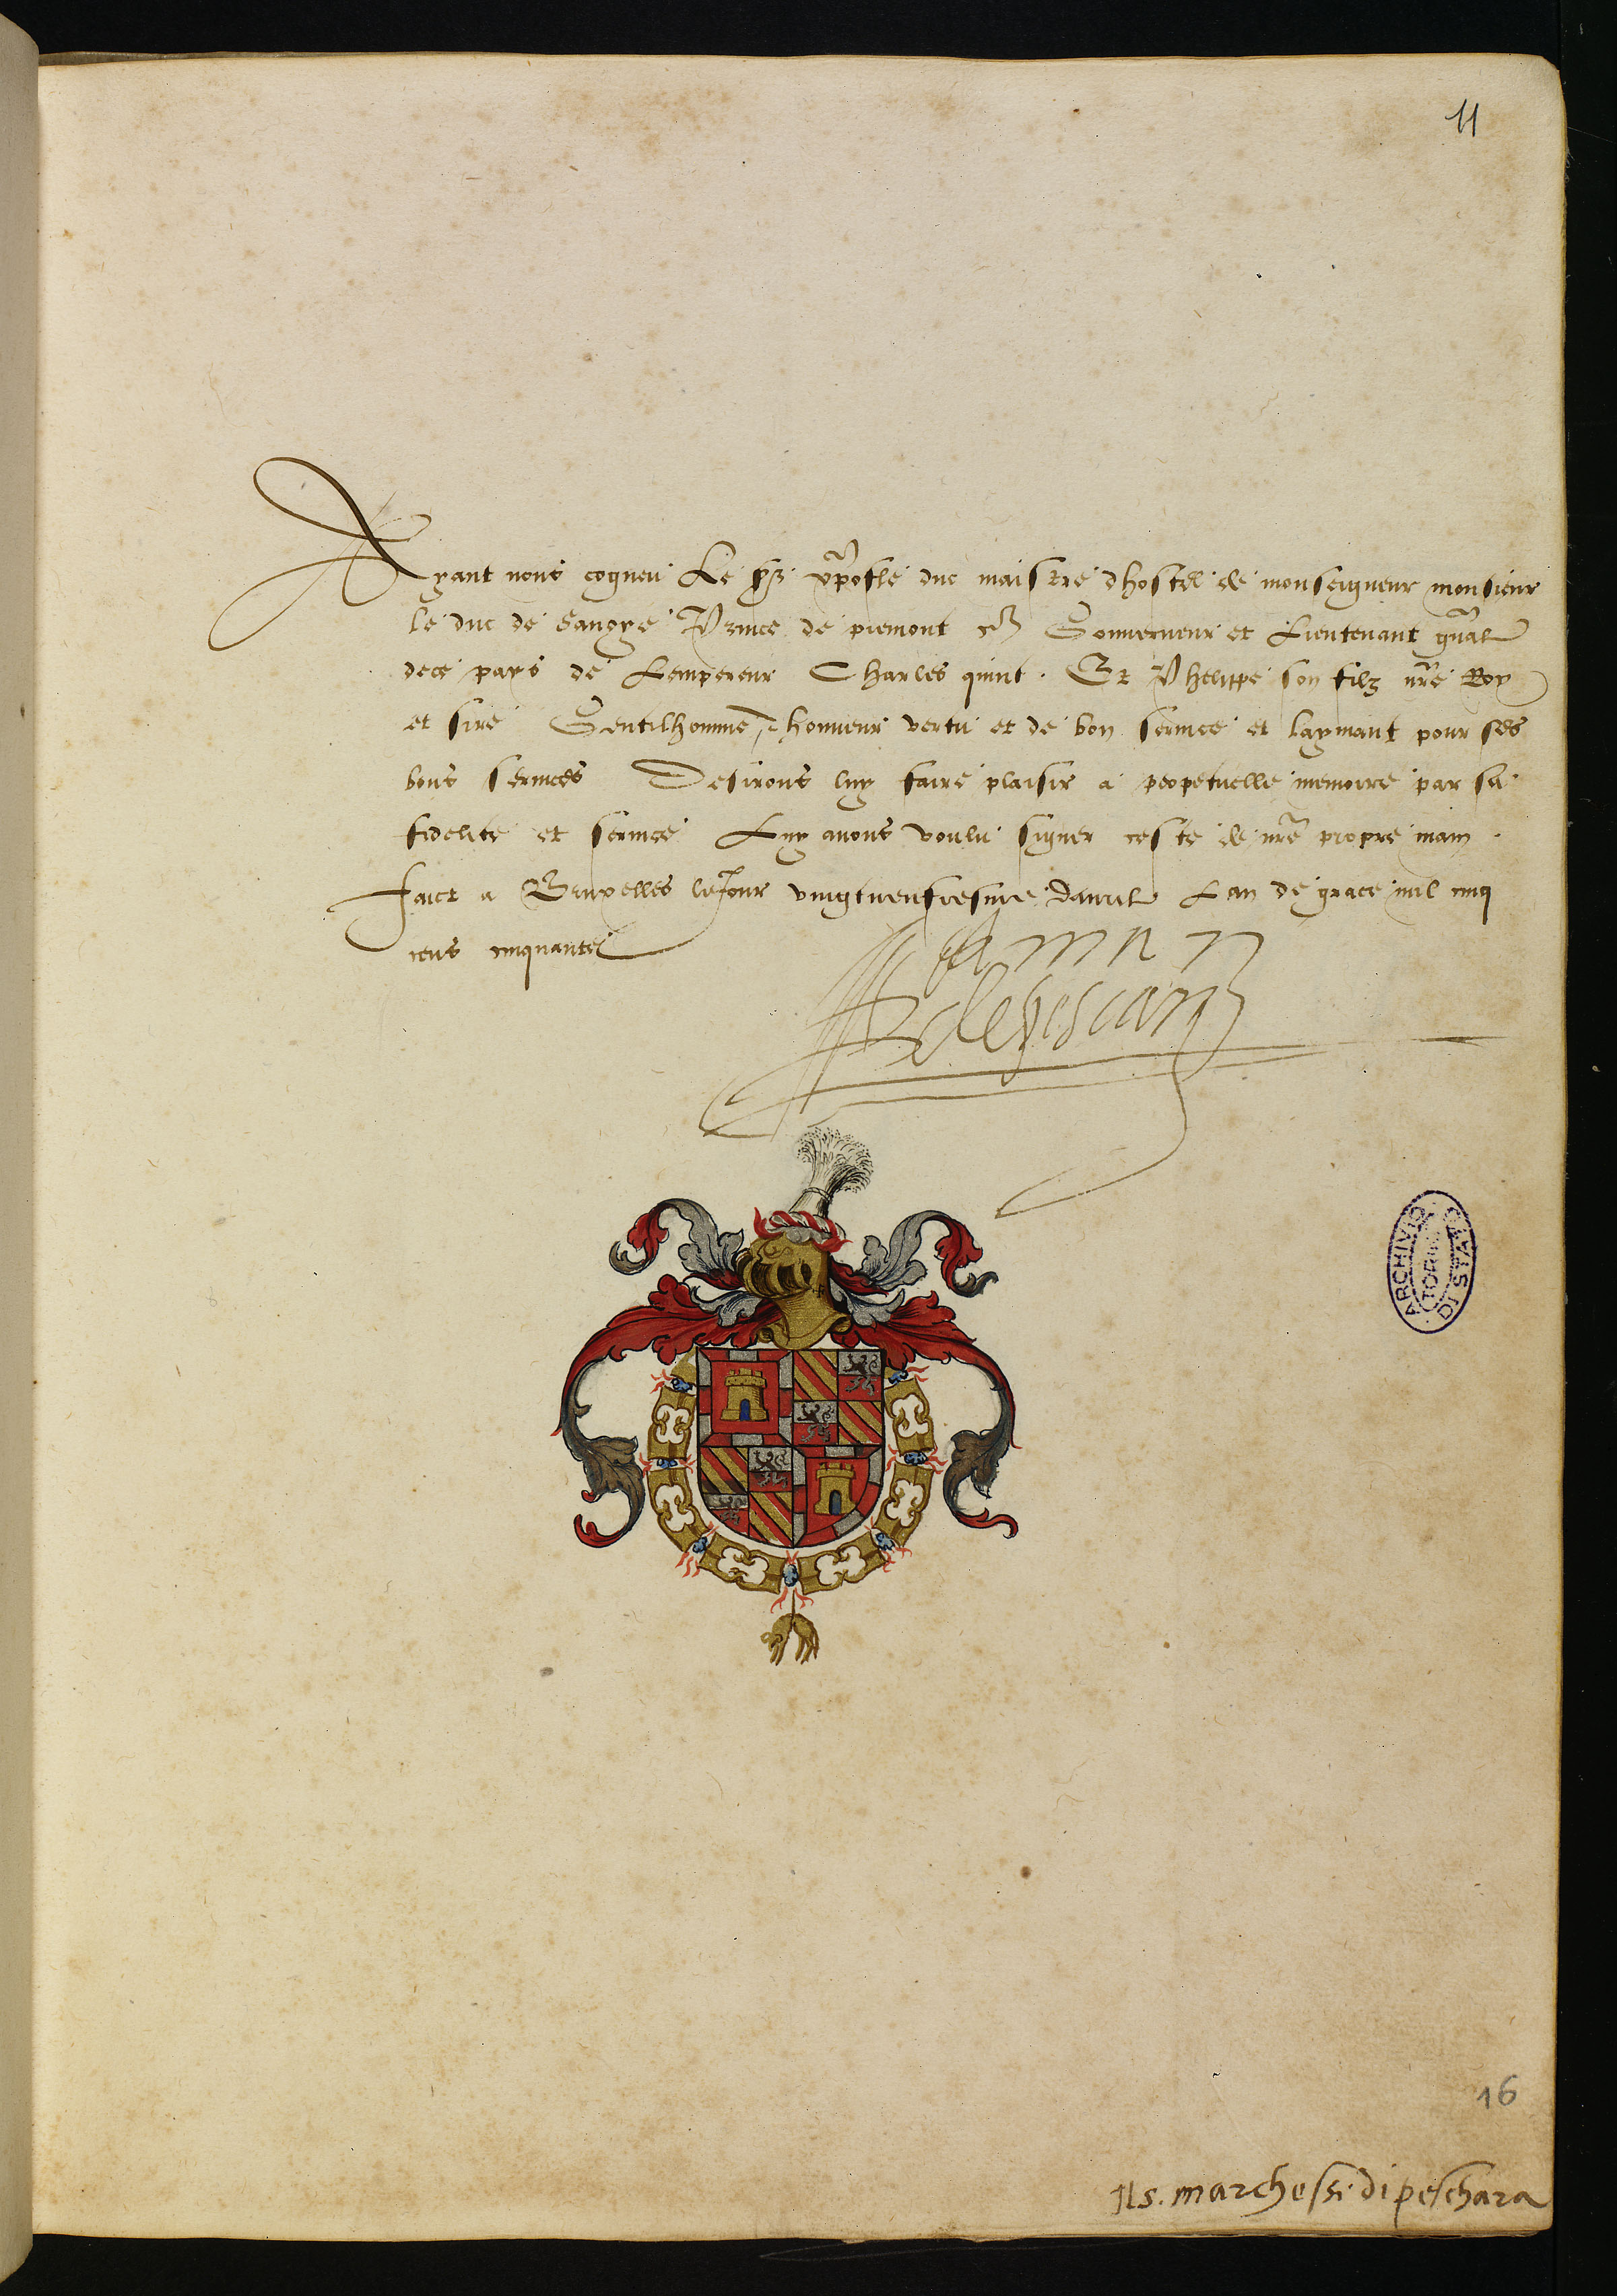 11
Ayant nous cogneu Le duc maistre dhostel de monseigneur monsieur
le duc de Sauoye Prince de piemont Gouuerneur et Lieutenant gñal
dece pays de Lempereur Charles quint. Et Phelippe son filz nr̃e Roy
et sire Gentilhomme dhonneur vertu et de bon seruice et laymant pour ses
bons seruices Desirons luy faire plaisir a perpetuelle memoire par sa
fidelite et seruice Luy auons voulu signer ceste de nr̃e propre main.
Faict a Bruxelles le Jour dauril Lan de grace mil cinq
cens cinquante
ARCHIVIO DI STATO
TORINO
16
Il s. marchesse di peschara